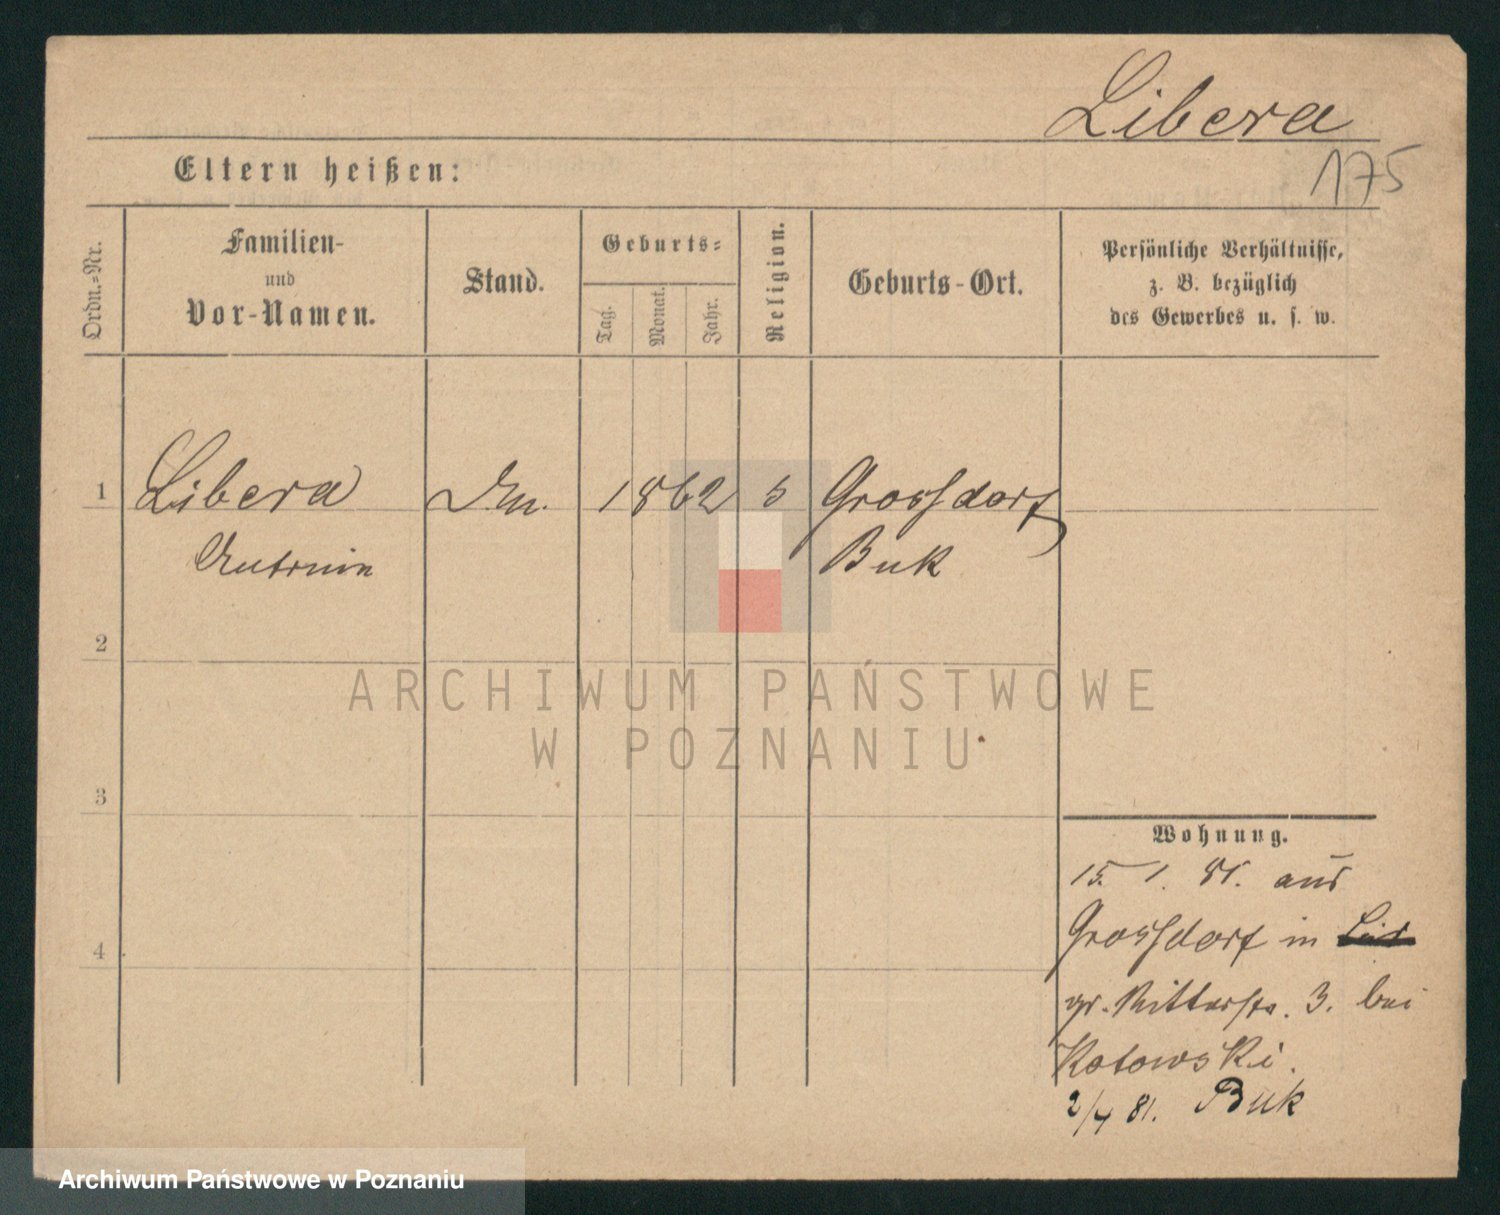 Libera
175
Eltern heißen:
Ordn.=Nr.
Familien-
und
Vor-Namen.
Stand.
Geburts=
Tag.
Monat.
Jahr.
Religion.
Geburts-Ort.
Persönliche Verhältnisse,
z. B. bezüglich
des Gewerbes u. s. w.
1
Libera
1862
Grossdorf
Buk
2
3
4
Wohnung.
15. 1. 81. aus
Grossdorf in
gr. Ritterstr. 3. bei
Kotowski.
2/4 81. Buk
ARCHIWUM PAŃSTWOWE
W POZNANIU
Archiwum Państwowe w Poznaniu